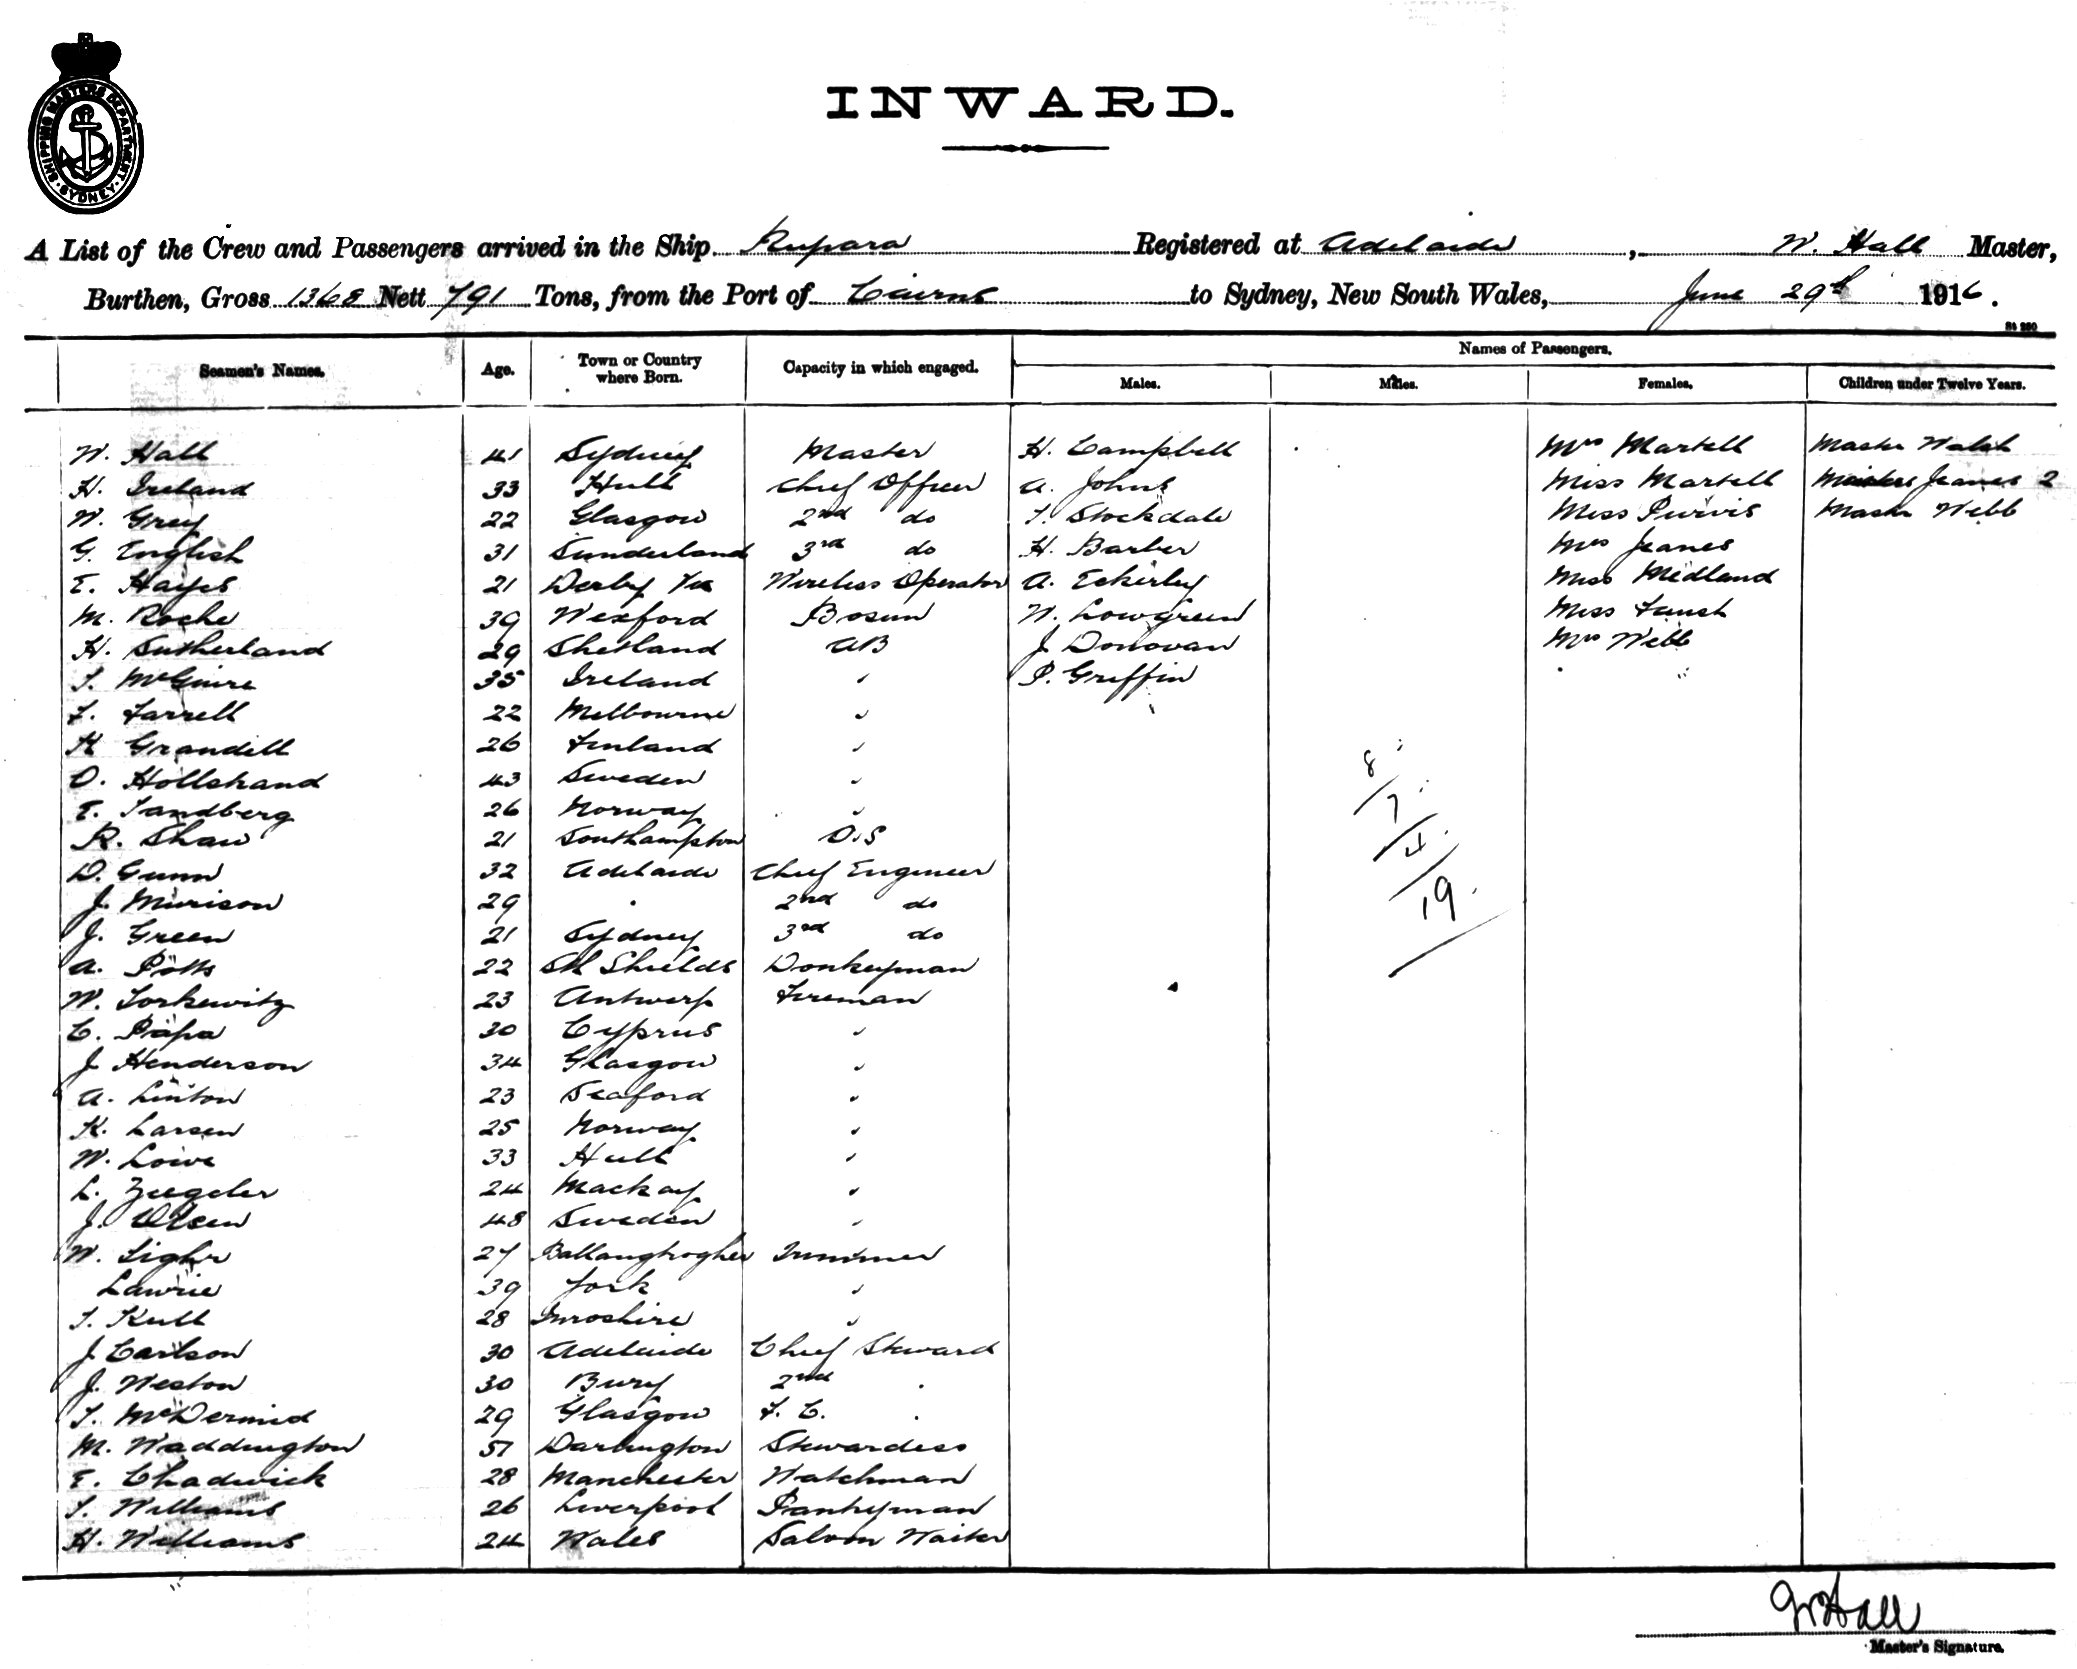 SHIPPING MASTERS DEPARTMENT
SYDNEY
INWARD.
A List of the Crew and Passengers arrived in the Ship Rupara Registered at Adelaide, W. Hall Master,
Burthen, Gross 1368 Nett 791 Tons, from the Port of Cairns to Sydney, New South Wales, June 29th 1916.
St 230
Seamen's Names. Age. Town or Country where Born. Capacity in which engaged. Names of Passengers.
Males. Males. Females. Children under Twelve Years.
W. Hall 41 Sydney Master H. Campbell Mrs Martell Master Walsh
H. Ireland 33 Hull Chief Officer A. Johns Miss Martell Masters Jeanes 2
W. Grey 22 Glasgow 2nd do T. Stockdale Miss Purvis Master Webb
G. English 31 Sunderland 3rd do H. Barber Mrs Jeanes
E. Hayes 21 Derby Wireless Operator A. Eckerley Miss Medland
M. Roche 39 Wexford Bosun W. Lowgreen Miss
H. Sutherland 29 Shetland AB J. Donovan Mrs Webb
T. McGuire 35 Ireland " P. Griffin
F. Farrell 22 Melbourne "
K Grandell 26 Finland "
O. Hollstrand 43 Sweden "
E. Sandberg 26 Norway "
R. Shaw 21 Southampton O.S
D. Gunn 32 Adelaide Chief Engineer
J. Murison 29 " 2nd do
J. Green 21 Sydney 3rd do
A. Potts 22 Sth Shields Donkeyman
W. Torkewitz 23 Antwerp Fireman
C. Papa 30 Cyprus "
J Henderson 34 Glasgow "
A. Linton 23 Seaford "
K. Larsen 25 Norway "
W. Lowe 33 Hull "
L. Zeegeler 24 Mackay "
J. Olsen 48 Sweden "
W. 27 Trimmer
Lawrie 39 York "
T. Kull 28 "
J Carlson 30 Adelaide Chief Steward
J. Weston 30 Bury 2nd "
T. McDermid 29 Glasgow F. C. "
M. Waddington 51 Darlington Stewardess
E. Chadwick 28 Manchester Watchman
T. Williams 26 Liverpool Pantryman
H. Williams 24 Wales Saloon Waiter
8
7
4
19
W Hall
Master's Signature.